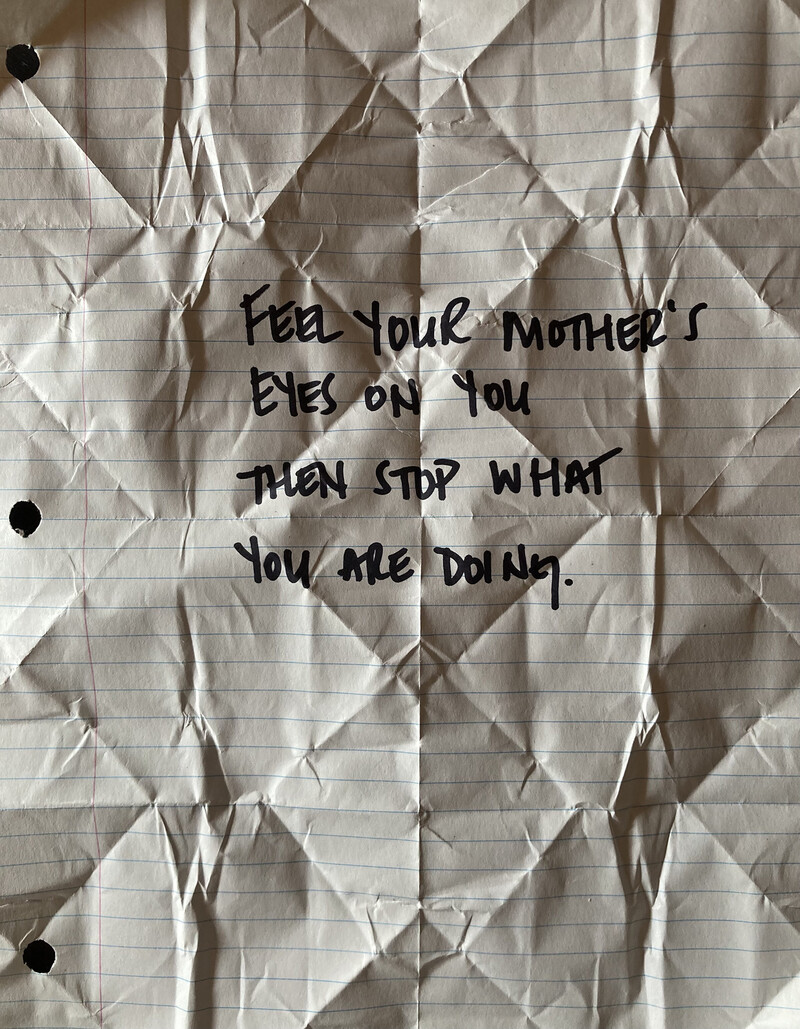 FEEL YOUR MOTHER'S
EYES ON YOU
THEN STOP WHAT
YOU ARE DOING.